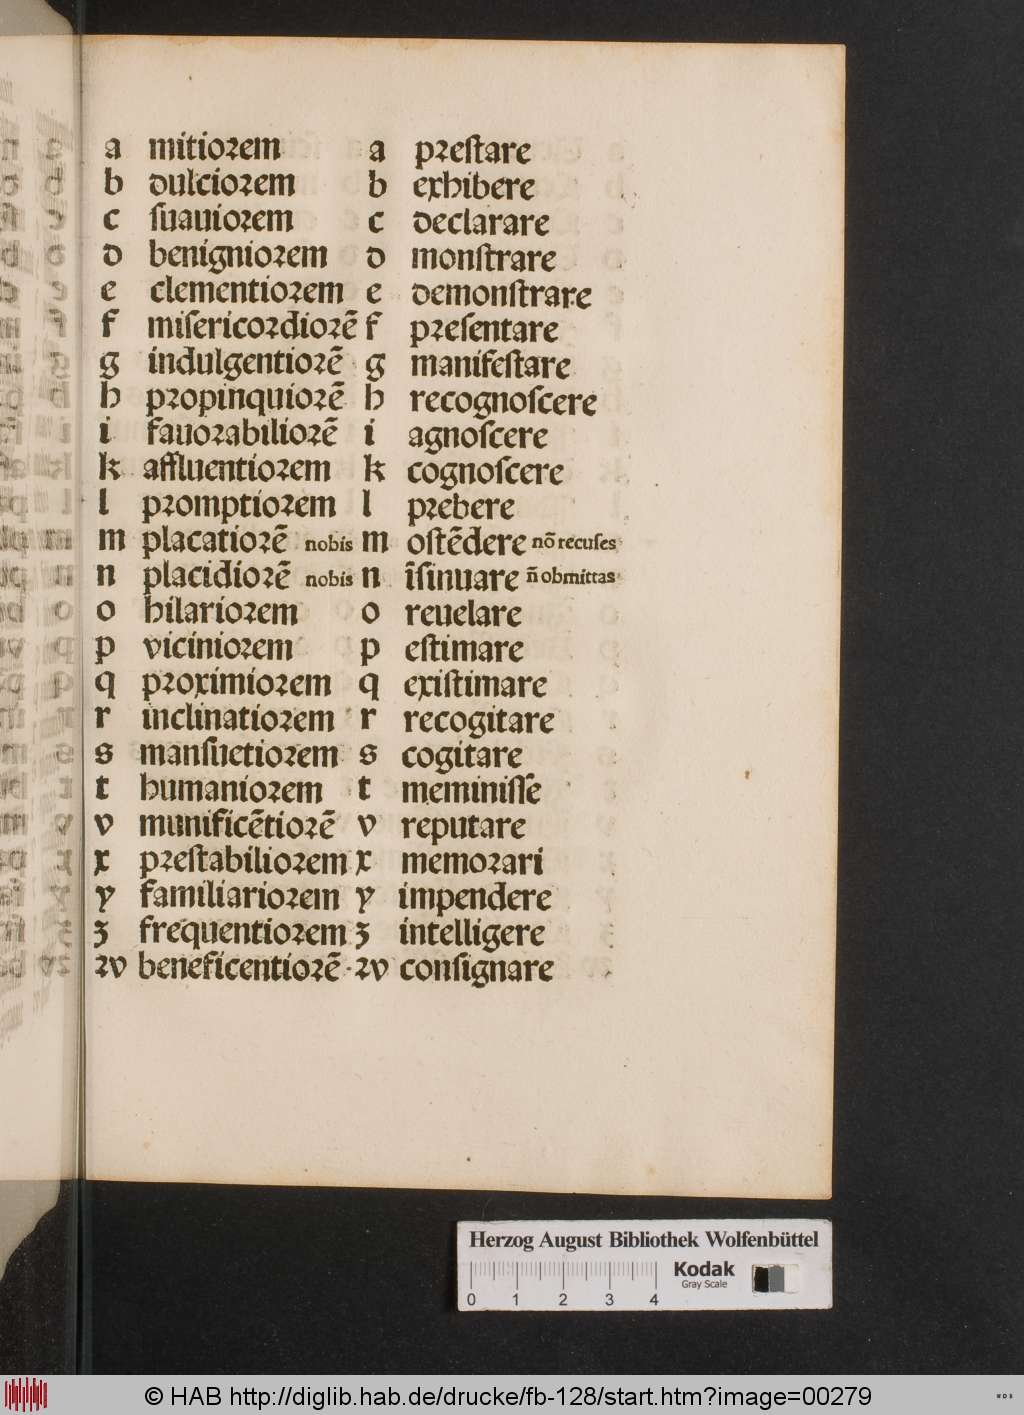 a mitiorem a preſtare
b dulciorem b exhibere
c ſuauiorem c declarare
d benigniorem d monſtrare
e clementiorem e demonſtrare
f miſericordiorē f preſentare
g indulgentiorē g manifeſtare
h propinquiorē h recognoſcere
i fauorabiliorē i agnoſcere
k affluentiorem k cognoſcere
l promptiorem l prebere
m placatiorē nobis m oſtēdere nō recuſes
n placidiorē nobis n īſinuare n̄ obmittas
o hilariorem o reuelare
p viciniorem p eſtimare
q proximiorem q exiſtimare
r inclinatiorem r recogitare
s manſuetiorem s cogitare
t humaniorem t meminiſſe
v munificētiorē v reputare
x preſtabiliorem x memorari
y familiariorem y impendere
z frequentiorem z intelligere
ꝛv beneficentiorē ꝛv conſignare
Herzog August Bibliothek Wolfenbüttel
Kodak
Gray Scale
0 1 2 3 4
© HAB http://diglib.hab.de/drucke/fb-128/start.htm?image=00279